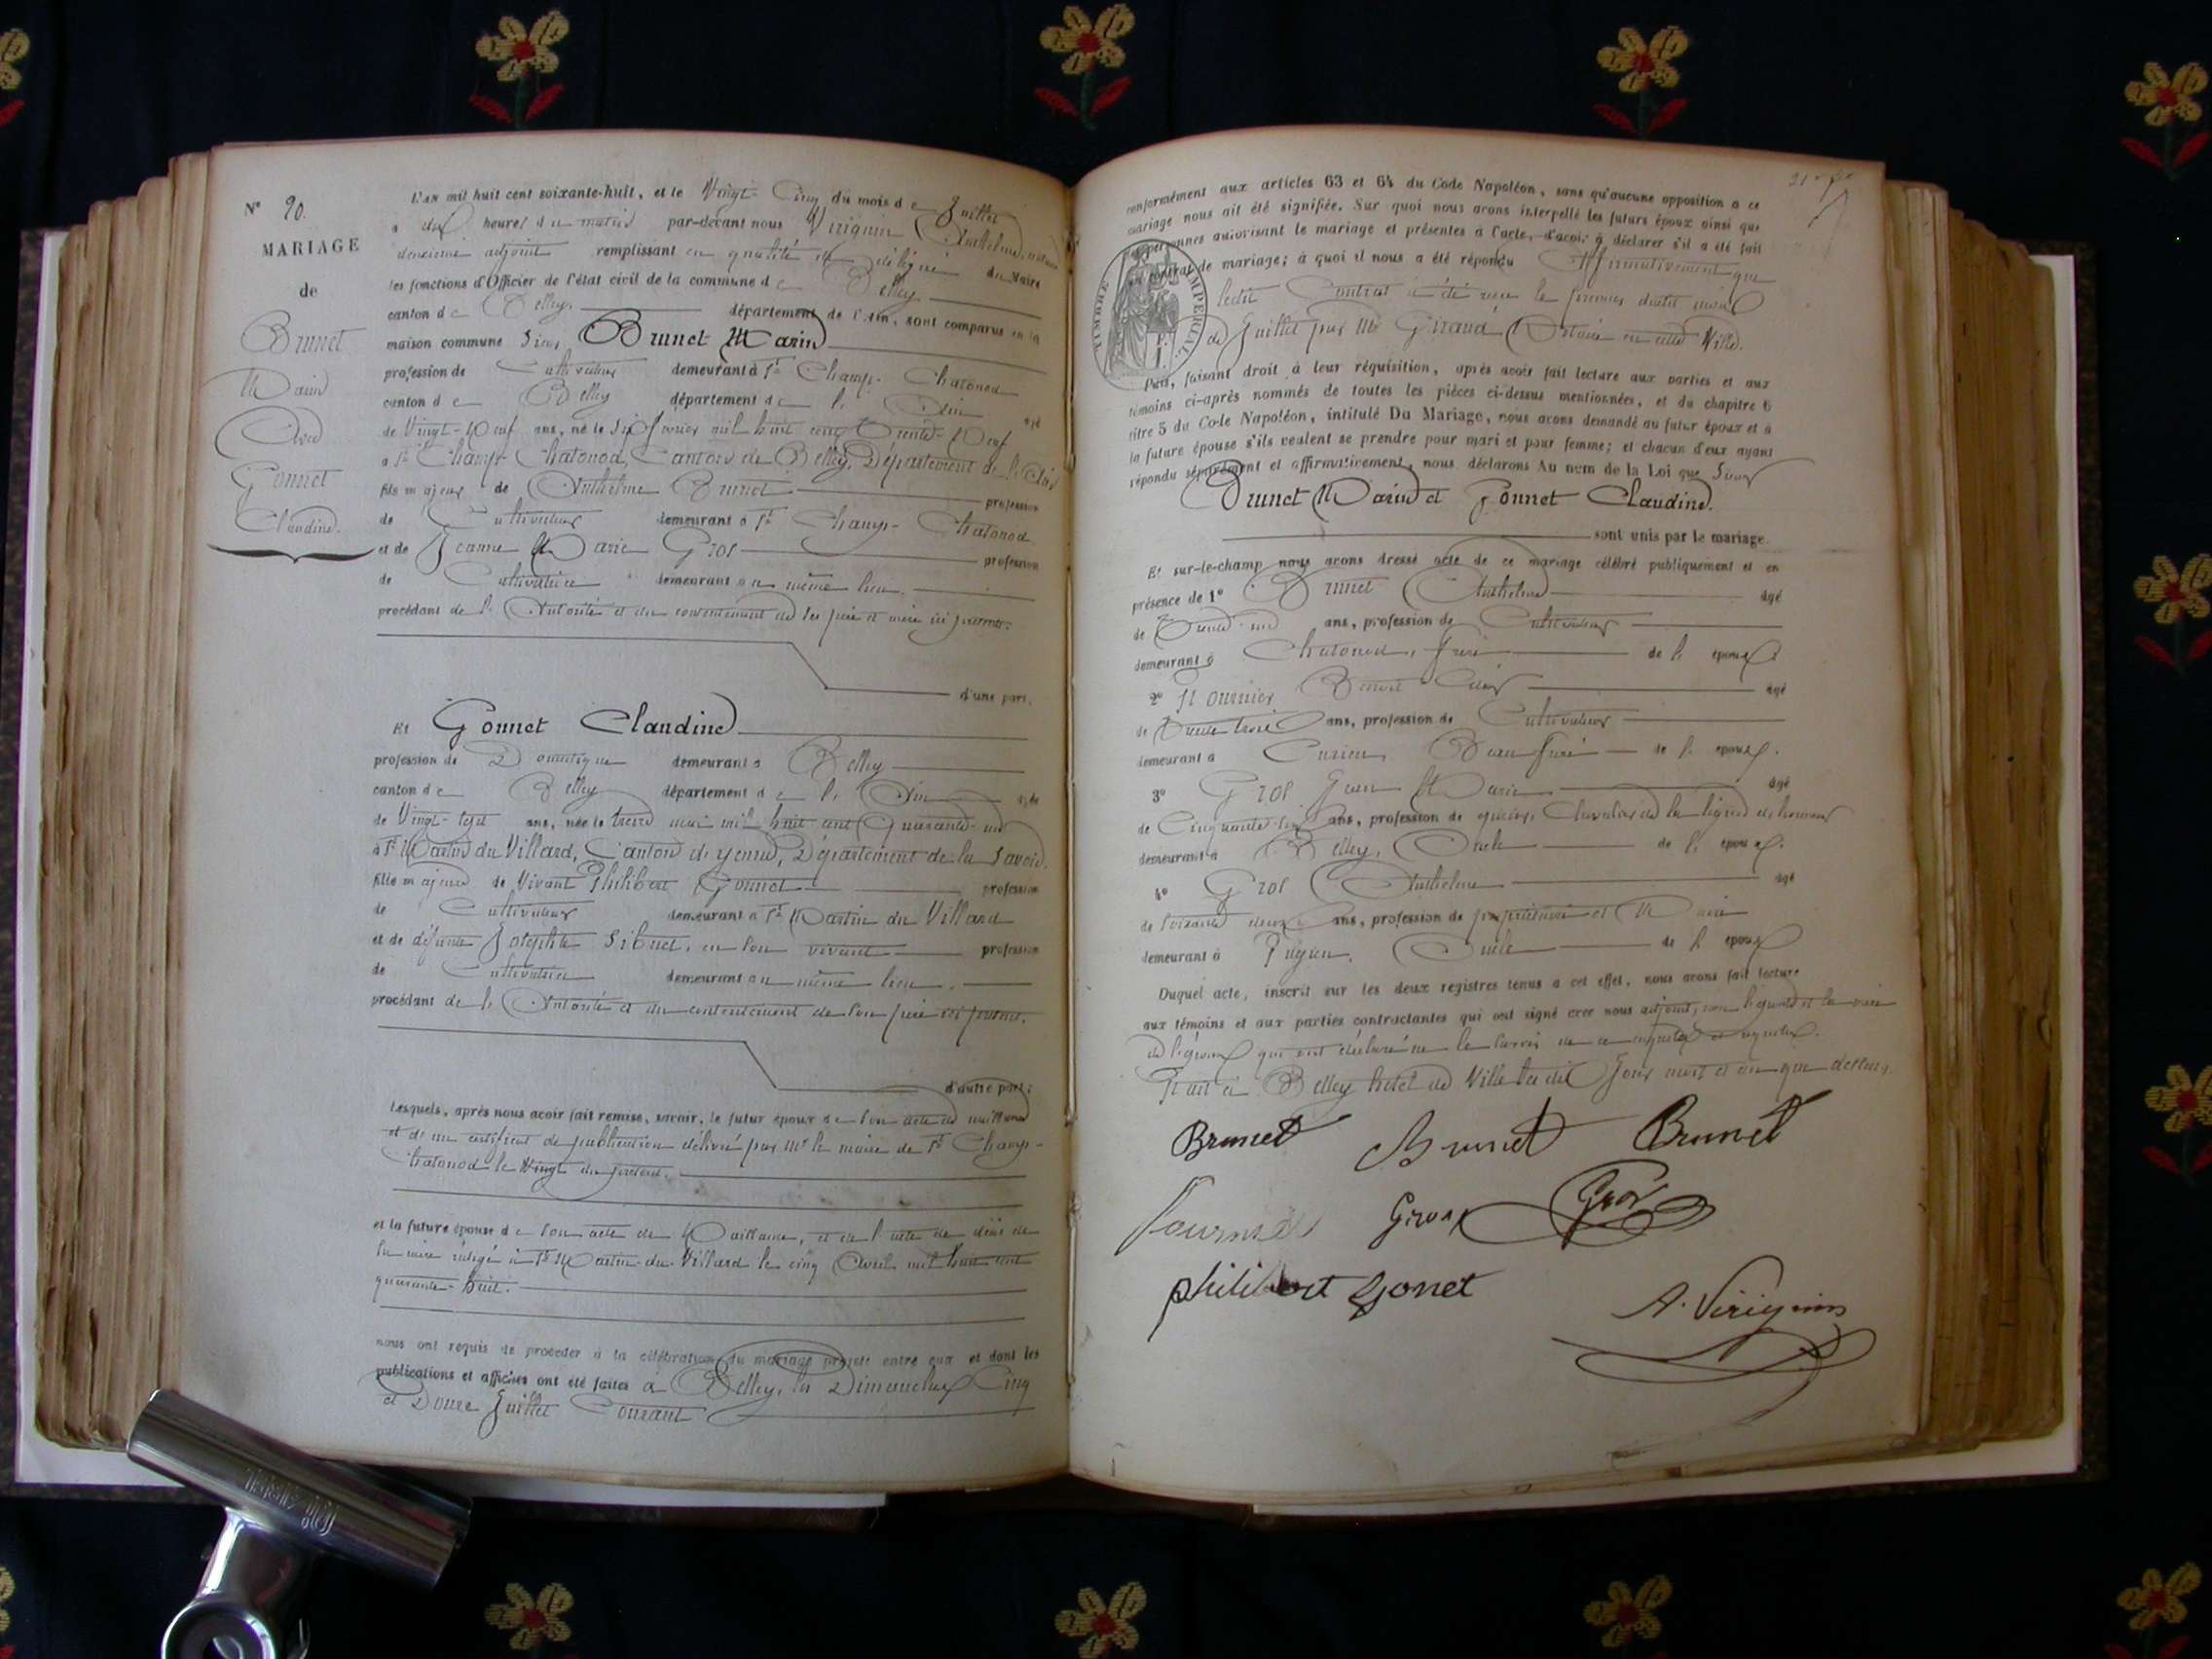 N° 20.
MARIAGE
de
Brunet
Marin
Avec
Gonnet
Claudine.
L'an mil huit cent soixante-huit, et le Vingt-Cinq du mois de Juillet
a dix heures du matin par-devant nous Virignin Anthelme,
deuxième adjoint remplissant en qualité de délégué du Maire
les fonctions d'Officier de l'état civil de la commune de Belley
canton de Belley. département de l'Ain, sont comparus en la
maison commune Sieur Brunet Marin
profession de Cultivateur demeurant à St Champ-Chatonod
canton de Belley département de l'Ain agé
de Vingt-Neuf ans, né le six février mil huit cent Trente-Neuf
a St Champ-Chatonod, Canton de Belley, Département de l'Ain
fils majeur de Anthelme Brunet profession
de Cultivateur demeurant à St Champ-Chatonod
et de Jeanne Marie Gros profession
de Cultivatrice demeurant au même lieu.
procédant de l'Autorité et du consentement de ses père et mère ici présents.
d'une part.
Et Gonnet Claudine
profession de Domestique demeurant à Belley
canton de Belley département de l'Ain agée
de Vingt-sept ans, née le treize mai mil huit cent Quarante-un
à St Martin du Villard, Canton de Yenne, Département de la Savoie.
fille majeure de Vivant Philibert Gonnet profession
de Cultivateur demeurant à St Martin du Villard
et de défunte Josephte Sibuet, en son vivant profession
de Cultivatrice demeurant au même lieu.
procédant de l'Autorité et du consentement de son père ici présent.
d'autre part;
Lesquels, après nous avoir fait remise, savoir, le futur époux de son acte de naissance
et de un certificat de publication délivré par Mr le maire de St Champ-
Chatonod le Vingt du présent.
et la future épouse de son acte de Naissance, et de l'acte de décès de
sa mère rédigé à St Martin-du-Villard le cinq Avril mil huit cent
quarante-huit.
nous ont requis de procéder à la célébration du mariage projeté entre eux et dont les
publications et affiches ont été faites à Belley, les Dimanches Cinq
et Douze Juillet Courant
conformément aux articles 63 et 64 du Code Napoléon, sans qu'aucune opposition a ce
mariage nous ait été signifiée. Sur quoi nous avons interpellé les futurs époux ainsi que
personnes autorisant le mariage et présentes à l'acte, d'avoir à déclarer s'il a été fait
contrat de mariage; à quoi il nous a été répondu Affirmativement que
ledit Contrat a été reçu le premier dudit mois
de Juillet par Me Giraud Notaire en cette Ville.
TIMBRE IMPERIAL.
Puis, faisant droit à leur réquisition, après avoir fait lecture aux parties et aux
témoins ci-après nommés de toutes les pièces ci-dessus mentionnées, et du chapitre 6
titre 5 du Code Napoléon, intitulé Du Mariage, nous avons demandé au futur époux et à
la future épouse s'ils veulent se prendre pour mari et pour femme; et chacun d'eux ayant
répondu séparément et affirmativement, nous déclarons Au nom de la Loi que Sieur
Brunet Marin et Gonnet Claudine.
sont unis par le mariage.
Et sur-le-champ nous avons dressé acte de ce mariage célébré publiquement et en
présence de 1° Brunet Anthelme agé
de Trente ans, profession de Cultivateur
demeurant à Chatonod, frère de l'époux
2° Fournier Benoit agé
de Trente trois ans, profession de Cultivateur
demeurant à Cuzieu Beau frère de l'époux.
3° Gros Jean Marie agé
de Cinquante ans, profession de Chevalier de la légion d'honneur
demeurant à Belley, Oncle de l'époux.
4° Gros Anthelme agé
de soixante deux ans, profession de propriétaire et Maire
demeurant à Pugieu. Oncle de l'époux
Duquel acte, inscrit sur les deux registres tenus a cet effet, nous avons fait lecture
aux témoins et aux parties contractantes qui ont signé avec nous adjoint, non l'épouse et la mère
de l'époux qui ont déclaré ne le savoir de ce enquises et requises.
Fait à Belley hotel de Ville les dit Jour mois et an que dessus.
Brunet Brunet Brunet
Fournier Gros Gros
philibert gonet
A. Virignin